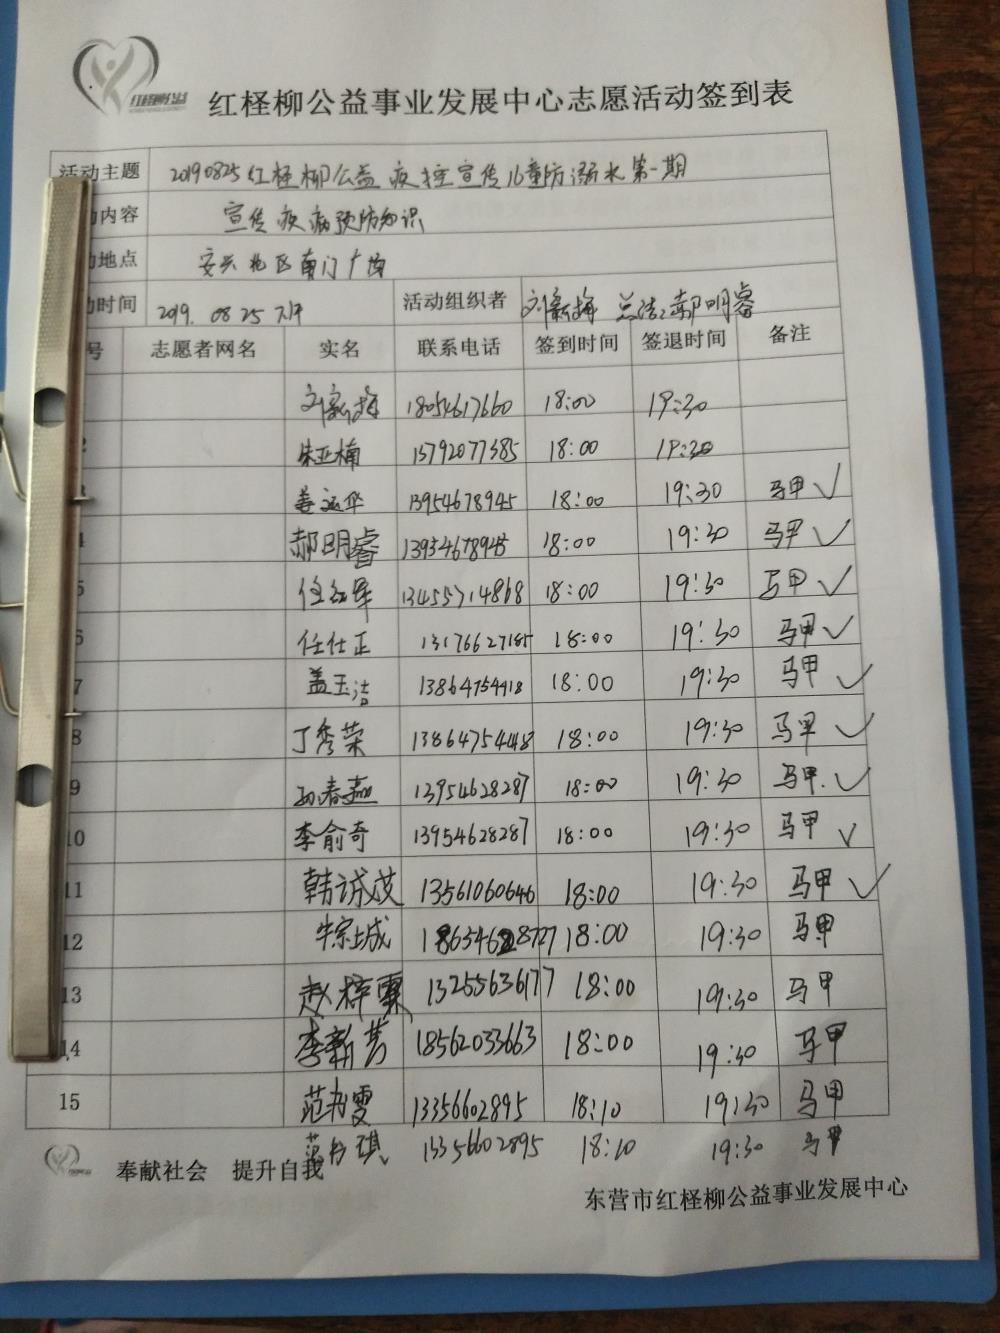 红柽柳公益
红柽柳公益事业发展中心志愿活动签到表
活动主题 20190825红柽柳公益疾控宣传儿童防溺水第一期
动内容 宣传疾病预防知识
动地点 安兴北区南门广场
动时间 2019.08.25 活动组织者 刘新梅 总结:郝明睿
号 志愿者网名 实名 联系电话 签到时间 签退时间 备注
刘新梅 18054617660 18:00 19:30
2 朱亚楠 15792077385 18:00 19:30
3 姜运华 13954678945 18:00 19:30 马甲 ✓
4 郝明睿 13954678945 18:00 19:30 马甲 ✓
5 任红军 13455714868 18:00 19:30 马甲 ✓
6 任仕正 13176627185 18:00 19:30 马甲 ✓
7 盖玉洁 13864754418 18:00 19:30 马甲 ✓
8 丁秀荣 13864754418 18:00 19:30 马甲 ✓
9 孙春燕 13954628287 18:00 19:30 马甲. ✓
10 李俞奇 13954628287 18:00 19:30 马甲 ✓
11 韩诚茂 13561060646 18:00 19:30 马甲 ✓
12 牛宗城 18654628727 18:00 19:30 马甲
13 赵梓霖 13255636177 18:00 19:30 马甲
14 李新芳 18562033663 18:00 19:30 马甲
15 范雯 13356602895 18:10 19:30 马甲
范琪 13356602895 18:10 19:30 马甲
奉献社会 提升自我
东营市红柽柳公益事业发展中心